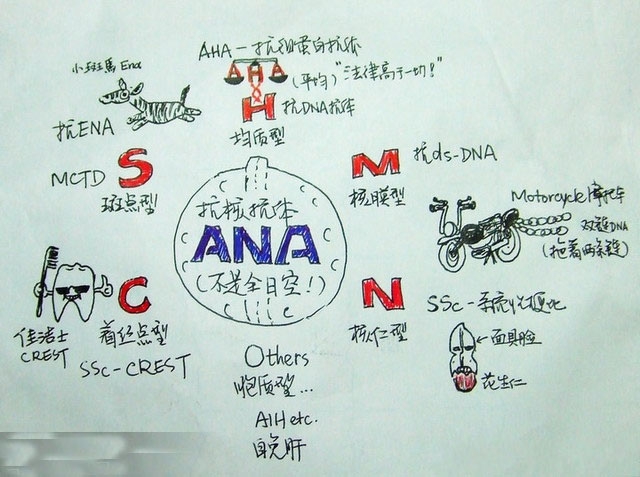 AHA-抗组蛋白抗体
AHA
(平均)"法律高于一切!"
H 抗DNA抗体
均质型
小斑馬 Ena
抗ENA
MCTD S
斑点型
M 抗ds-DNA
核膜型
Motorcycle 摩托车
双链DNA
(拖着两条链)
抗核抗体
ANA
(不是全日空!)
C
着丝点型
佳洁士
CREST
SSc-CREST
N
核仁型
SSc-系统性硬化
←面具脸
花生仁
Others
胞质型...
AIH etc.
自免肝